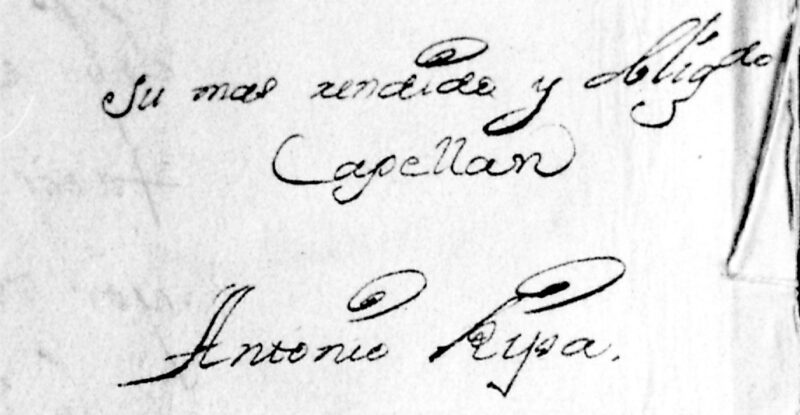 Su mas rendido y oblig.do
Capellan
Antonio Ripa.